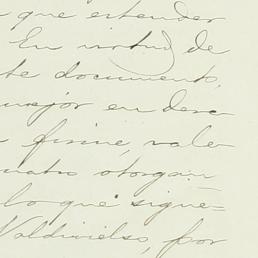 que estender
En virtud de
te documento,
mejor en dere
firme, vale
uatro otorgan
lo que sigue=
Valdivielso, por